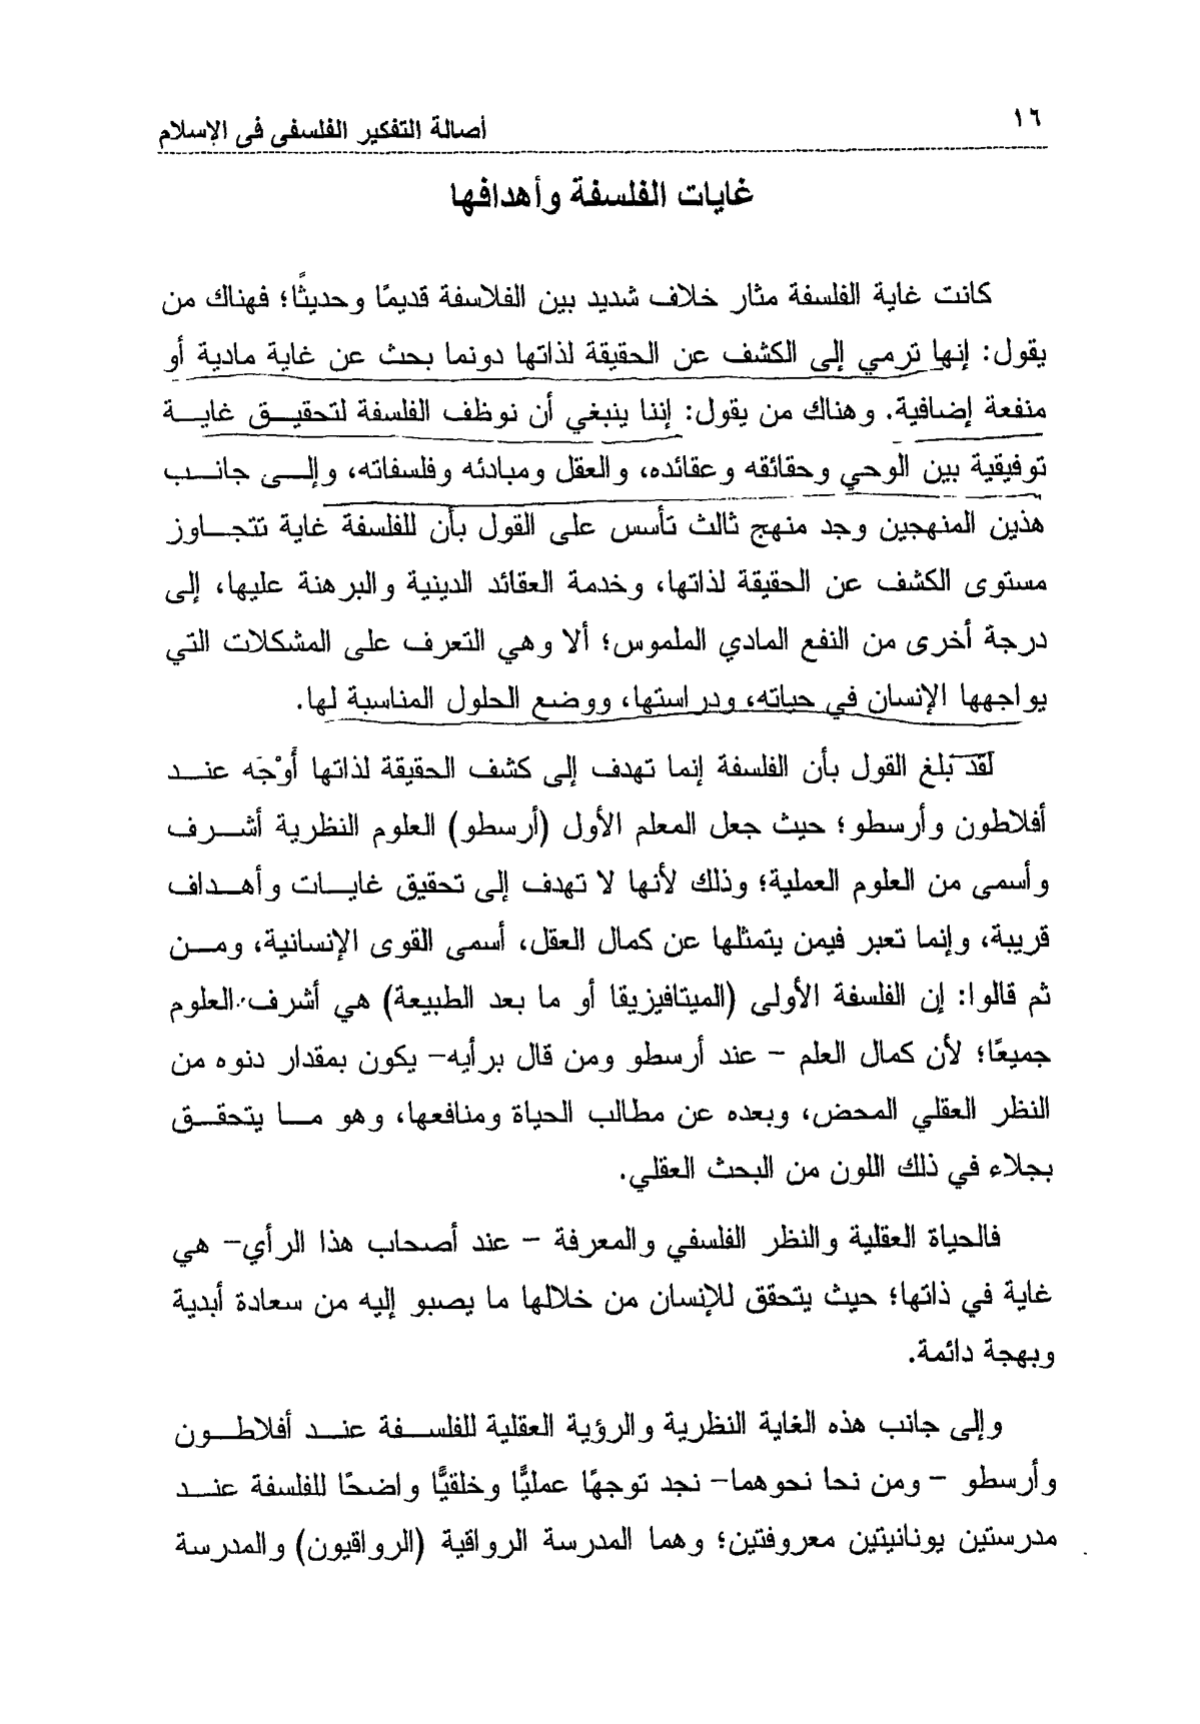 ١٦
أصالة التفكير الفلسفى فى الإسلام
غايات الفلسفة وأهدافها
كانت غاية الفلسفة مثار خلاف شديد بين الفلاسفة قديمًا وحديثًا؛ فهناك من
يقول: إنها ترمي إلى الكشف عن الحقيقة لذاتها دونما بحث عن غاية مادية أو
منفعة إضافية. وهناك من يقول: إننا ينبغي أن نوظف الفلسفة لتحقيق غاية
توفيقية بين الوحي وحقائقه وعقائده، والعقل ومبادئه وفلسفاته، وإلى جانب
هذين المنهجين وجد منهج ثالث تأسس على القول بأن للفلسفة غاية تتجاوز
مستوى الكشف عن الحقيقة لذاتها، وخدمة العقائد الدينية والبرهنة عليها، إلى
درجة أخرى من النفع المادي الملموس؛ ألا وهي التعرف على المشكلات التي
يواجهها الإنسان في حياته، ودراستها، ووضع الحلول المناسبة لها.
لقد بلغ القول بأن الفلسفة إنما تهدف إلى كشف الحقيقة لذاتها أَوْجَه عند
أفلاطون وأرسطو؛ حيث جعل المعلم الأول (أرسطو) العلوم النظرية أشرف
وأسمى من العلوم العملية؛ وذلك لأنها لا تهدف إلى تحقيق غايات وأهداف
قريبة، وإنما تعبر فيمن يتمثلها عن كمال العقل، أسمى القوى الإنسانية، ومن
ثم قالوا: إن الفلسفة الأولى (الميتافيزيقا أو ما بعد الطبيعة) هي أشرف العلوم
جميعًا؛ لأن كمال العلم – عند أرسطو ومن قال برأيه– يكون بمقدار دنوه من
النظر العقلي المحض، وبعده عن مطالب الحياة ومنافعها، وهو ما يتحقق
بجلاء في ذلك اللون من البحث العقلي.
فالحياة العقلية والنظر الفلسفي والمعرفة – عند أصحاب هذا الرأي– هي
غاية في ذاتها؛ حيث يتحقق للإنسان من خلالها ما يصبو إليه من سعادة أبدية
وبهجة دائمة.
وإلى جانب هذه الغاية النظرية والرؤية العقلية للفلسفة عند أفلاطون
وأرسطو – ومن نحا نحوهما– نجد توجهًا عمليًّا وخلقيًّا واضحًا للفلسفة عند
مدرستين يونانيتين معروفتين؛ وهما المدرسة الرواقية (الرواقيون) والمدرسة